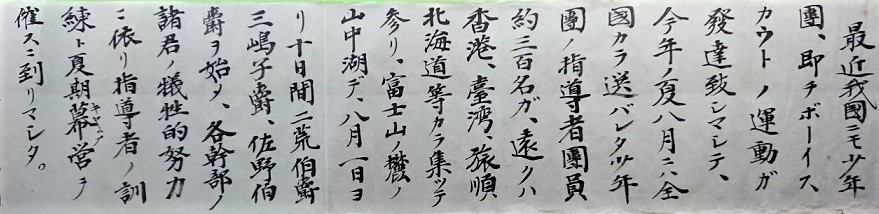 最近我國ニモ少年
團、即チボーイス
カウトノ運動ガ
發達致シマシテ、
今年ノ夏八月ニハ全
國カラ送バレタ少年
團ノ指導者團員
約三百名ガ、遠クハ
香港、臺湾、旅順
北海道等カラ集ッテ
参リ、富士山ノ麓ノ
山中湖デ、八月一日ヨ
リ十日間二荒伯爵
三嶋子爵、佐野伯
爵ヲ始メ、各幹部ノ
諸君ノ犠牲的努力
ニ依リ指導者ノ訓
練ト夏期幕営キャンプヲ
催スニ到リマシタ。